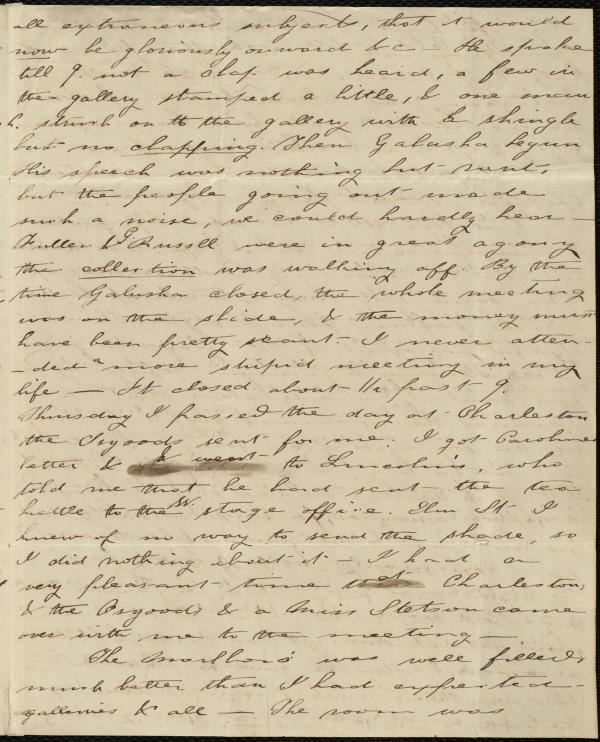 all extraneous subjects, that it would
now be gloriously onward &c – He spoke
till 9. not a clap was heard, a few in
the gallery stamped a little, & one man
struck on the gallery with a shingle
but no clapping. Then Galusha begun
His speech was nothing but rant,
but the people going out made
such a noise, we could hardly hear –
Fuller & G Russell were in great agony
the collection was walking off. By the
time Galusha closed, the whole meeting
was on the slide, & the money must
have been pretty scant – I never atten-
-ded a more stupid meeting in my
life – It closed about 1/2 past 9.
Thursday I passed the day at Charleston
the Osgoods sent for me. I got Caroline's
letter & went to Lincoln's, who
told me that he had sent the tea
kettle to the W. stage office. Elm St I
knew of no way to send the shade, so
I did nothing about it – I had a
very pleasant time at Charleston,
& the Osgoods & a Miss Stetson came
over with me to the meeting –
The Marlboro' was well filled,
much better than I had expected –
galleries & all – The room was